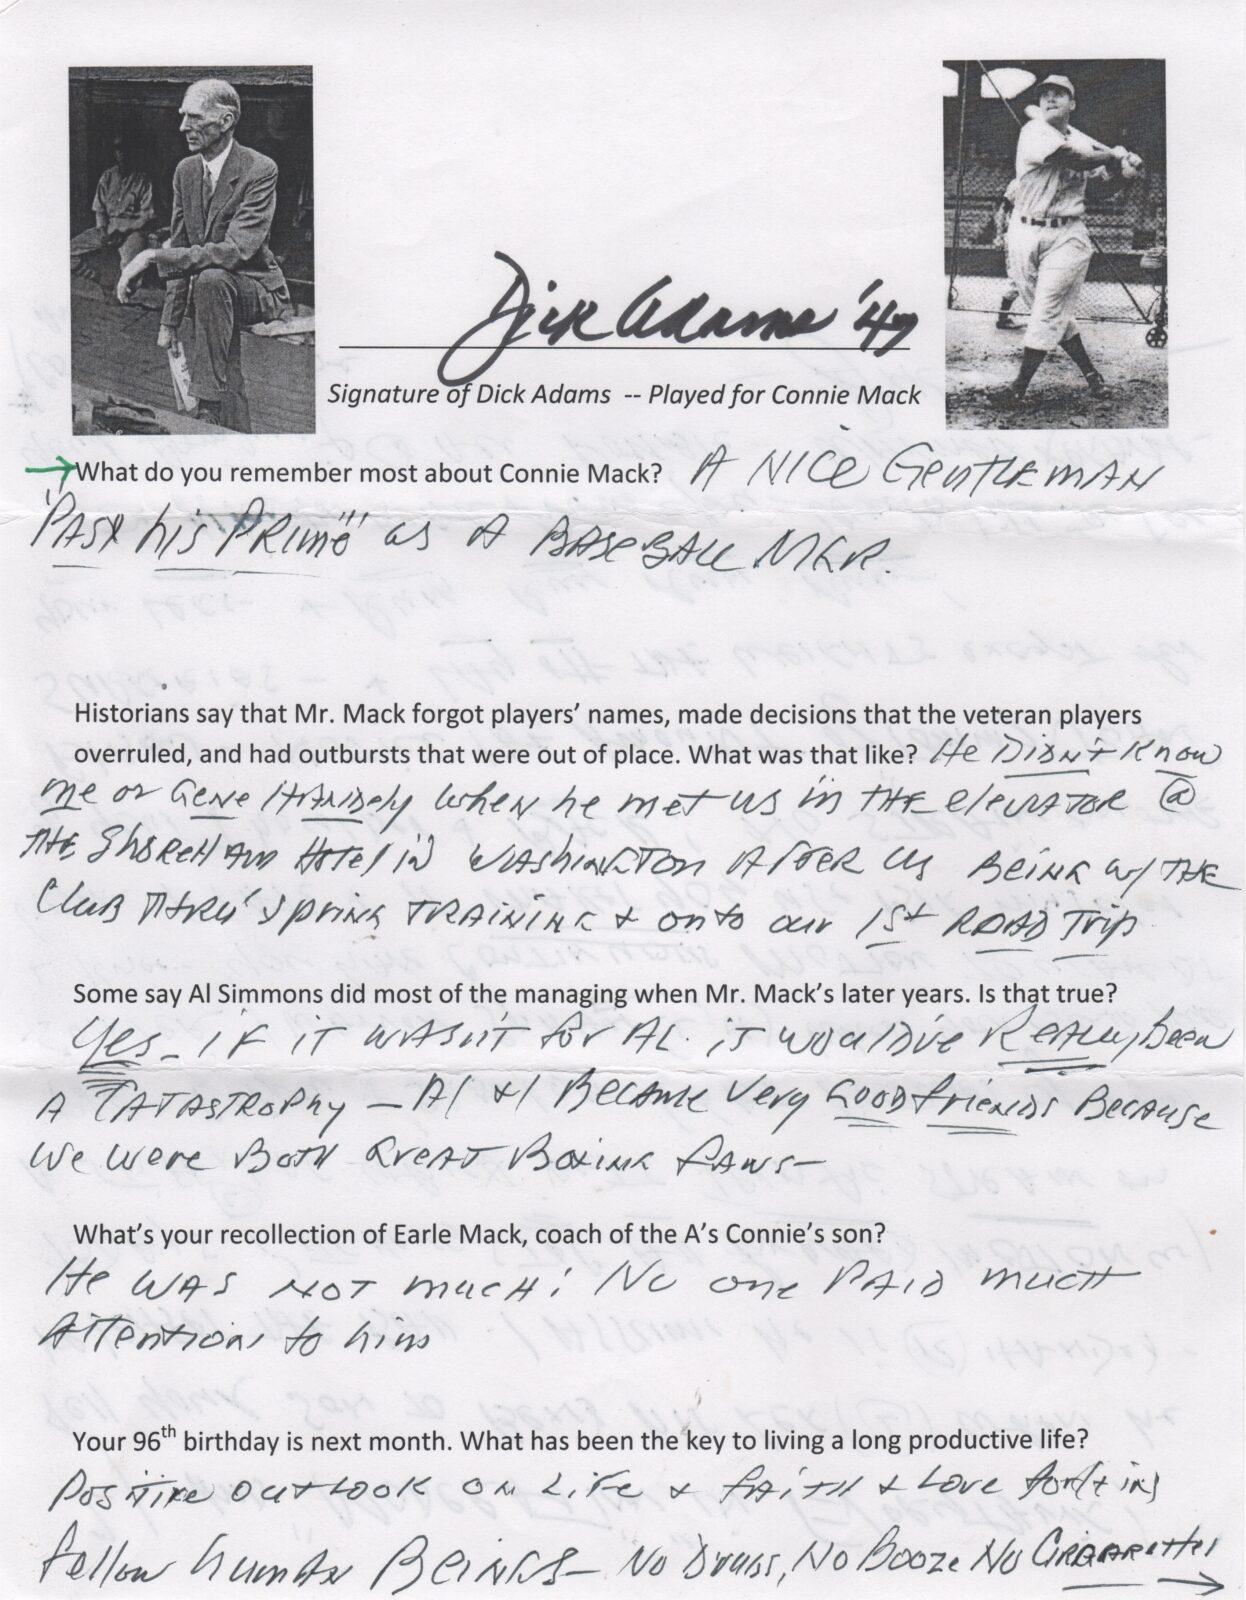 Dick Adams '47
Signature of Dick Adams -- Played for Connie Mack
What do you remember most about Connie Mack? A NICE GENTLEMAN
"PAST his PRIME" as A BASEBALL MGR.
Historians say that Mr. Mack forgot players' names, made decisions that the veteran players
overruled, and had outbursts that were out of place. What was that like? He DIDN't Know
me or Gene HANDLEY when he met us in THE elevATOR @
THE SHOREHAM Hotel in WASHINGTON AFTER us BEING w/ THE
CLUB THRU' SPRING TRAINING & onto our 1st ROAD Trip
Some say Al Simmons did most of the managing when Mr. Mack's later years. Is that true?
Yes - IF iT WASN'T for AL. iT would've REALLY Been
A CATASTROPHY – Al & I BECAME Very GOOD friends BECAUSE
We were BOTH GREAT BOXING FANS –
What's your recollection of Earle Mack, coach of the A's Connie's son?
He WAS NOT much; No one PAID much
ATTention to him
Your 96th birthday is next month. What has been the key to living a long productive life?
POSITIVE OUTLOOK ON LIFE & FAITH & LOVE for (& in)
fellow human BEINGS – No DRUGS, NO BOOZE NO CIGARETTES